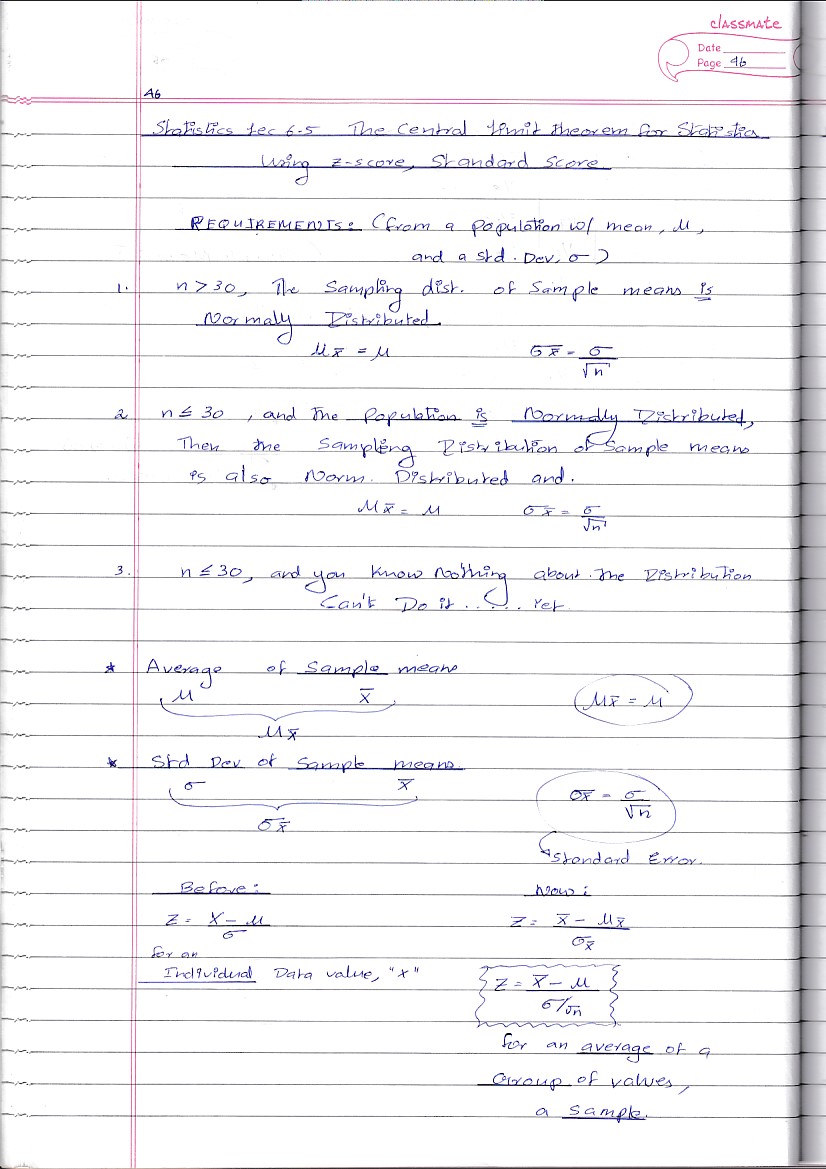 classmate
Date
Page 46
46
Statistics Lec 6.5 The Central Limit theorem for Statistics
Using z-score, Standard Score
REQUIREMENTS: (from a population w/ mean, μ,
and a std. Dev, σ)
1. n > 30, The Sampling dist. of Sample means is
Normaly Distributed.
μx̄ = μ σx̄ = σ/√n
2. n ≤ 30, and the Population is Normally Distributed,
Then the Sampling Distribution of Sample means
is also Norm. Distributed and.
μx̄ = μ σx̄ = σ/√n
3. n ≤ 30, and you know Nothing about the Distribution
Can't Do it....... Yet
* Average of Sample means
μ x̄ μx̄ = μ
μx̄
* Std Dev of Sample means
σ x̄ σx̄ = σ/√n
σx̄
Standard Error.
Before: Now:
z = x - μ / σ z = x̄ - μx̄ / σx̄
for an
Individual Data value, "x"
z = x̄ - μ / σ/√n
for an average of a
Group of values,
a Sample.